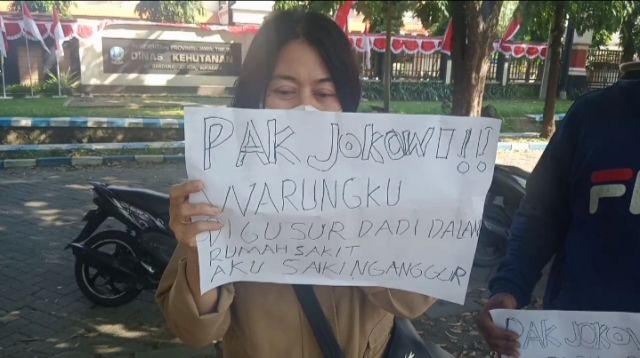 PEMERINTAH PROVINSI JAWA TIMUR
DINAS KEHUTANAN
PAK JOKOWI!!
WARUNGKU
DI GUSUR DADI DALAN
RUMAH SAKIT
AKU SAIKI NGANGGUR
PAK JOKOW